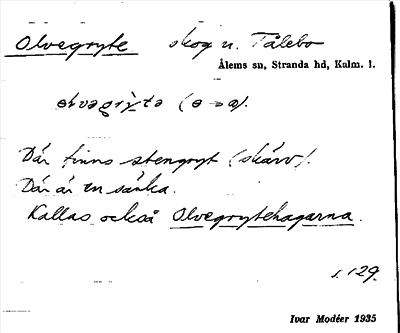 Olvegryte skog n. Tålebo
Ålems sn, Stranda hd, Kalm. l.
(ɵ → a).
Där finns stengryt (skärv).
Där är en sänka.
Kallas också Olvegrytehagarna.
s. 129.
Ivar Modéer 1935